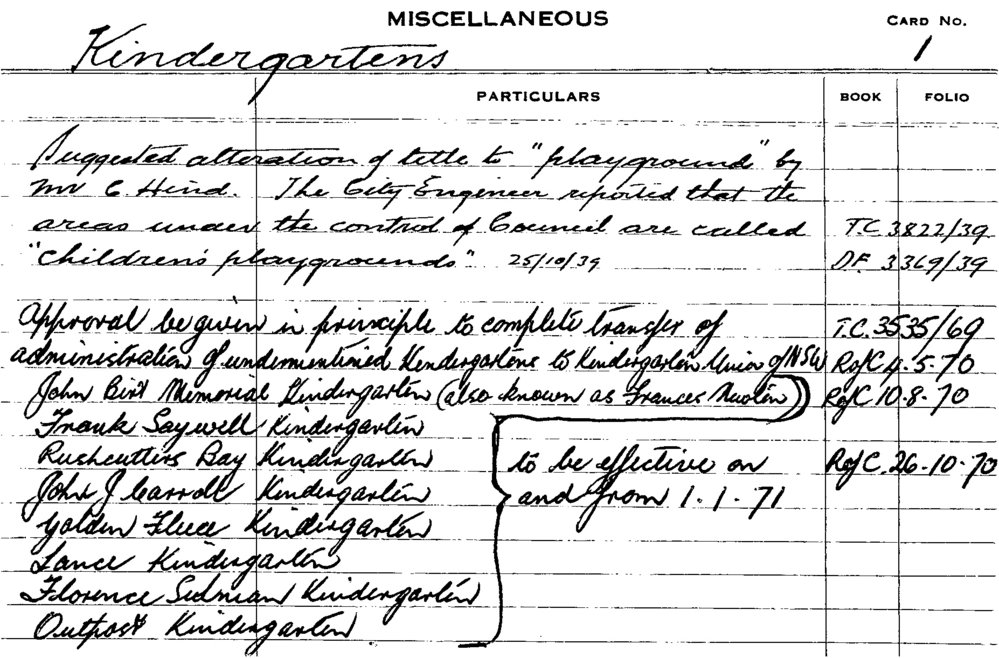 MISCELLANEOUS
CARD No.
Kindergartens
1
PARTICULARS BOOK FOLIO
Suggested alteration of title to "playground" by
Mr C. Hind. The City Engineer reported that the
areas under the control of Council are called T.C 3822/39
"Children's playgrounds" 25/10/39 D.F. 3369/39
Approval be given in principle to complete transfer of T.C. 3535/69
administration of undermentioned Kindergartens to Kindergarten Union of NSW RofC 4.5.70
John Birt Memorial Kindergarten (also known as Frances Newton) RofC 10.8.70
Frank Saywell Kindergarten
Rushcutters Bay Kindergarten to be effective on RofC. 26.10.70
John J Carroll Kindergarten and from 1.1.71
Golden Fleece Kindergarten
Lance Kindergarten
Florence Sulman Kindergarten
Outpost Kindergarten